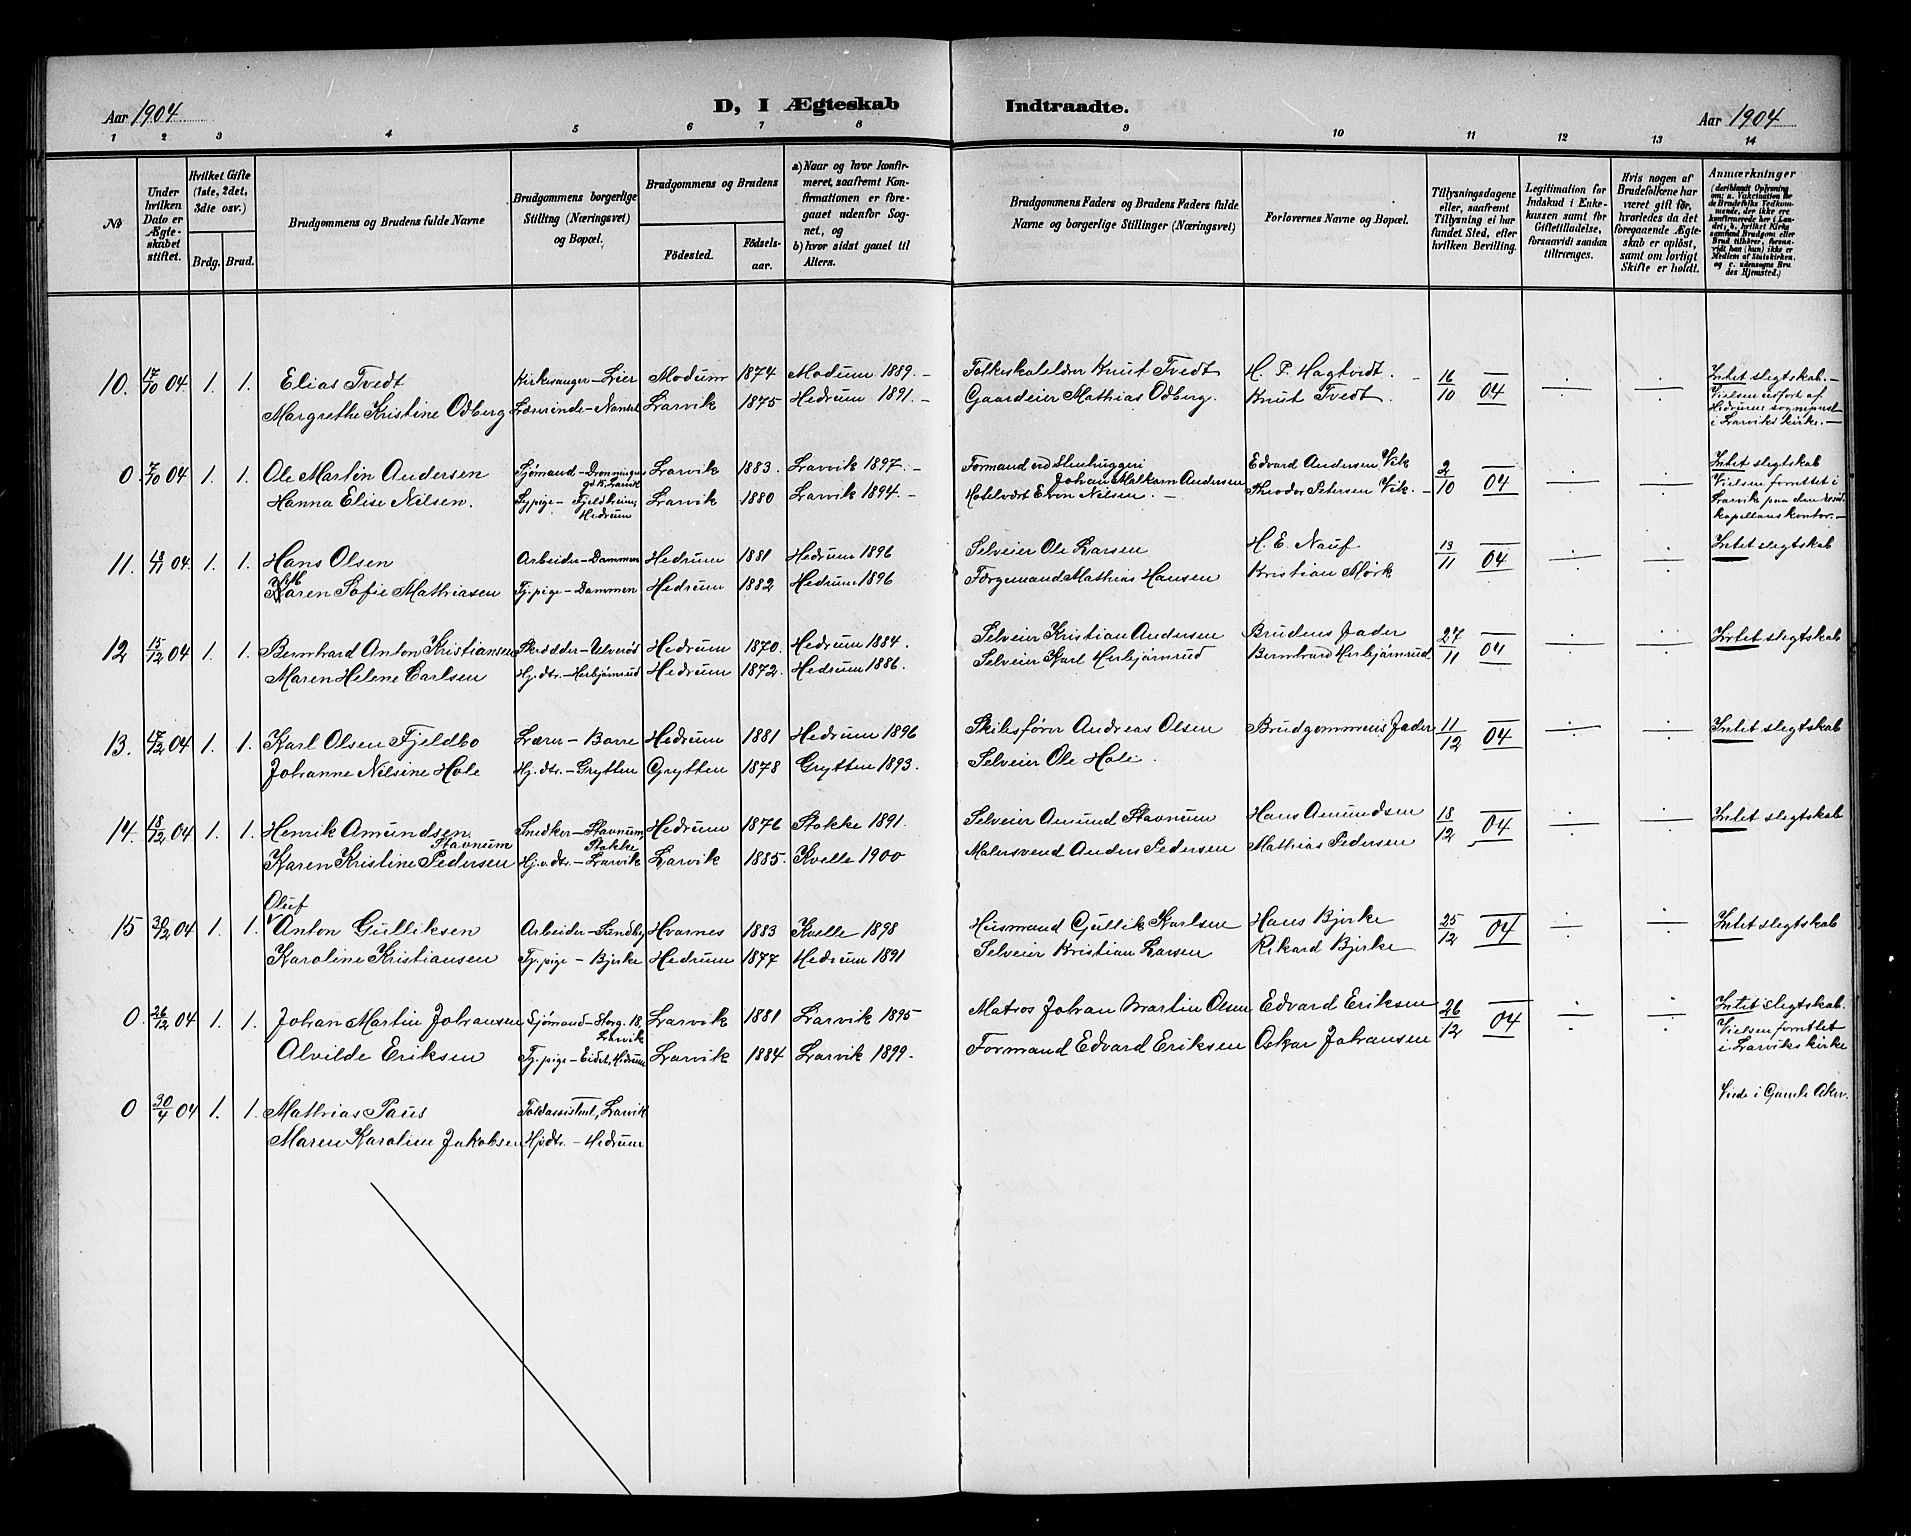 Aar 1904
D, I Ægteskab Indtraadte.
Aar 1904
1 2 3 4 5 6 7 8 9 10 11 12 13 14
No
Under hvilken Dato er Ægteskabet stiftet.
Hvilket Gifte (1ste, 2det, 3die osv.)
Brdg. Brud.
Brudgommens og Brudens fulde Navne
Brudgommens borgerlige Stilling (Næringsvei) og Bopæl.
Brudgommens og Brudens
Födested. Födsels-aar.
a) Naar og hvor konfirmeret, saafremt Konfirmationen er foregaaet udenför Sognet, og
b) hvor sidst gaaet til Alters.
Brudgommens Faders og Brudens Faders fulde Navne og borgerlige Stillinger (Næringsvei)
Forlovernes Navne og Bopæl.
Tillysningsdagene eller, saafremt Tillysning ei har fundet Sted, efter hvilken Bevilling.
Legitimation for Indskud i Enkekassen samt for Giftetilladelse, forsaavidt saadan tiltrænges.
Hvis nogen af Brudefolkene har været gift för, hvorledes da det foregaaende Ægteskab er oplöst, samt om lovligt Skifte er holdt.
Anmærkninger
10. 17/10 04 1. 1. Elias Tvedt Kirkesanger - Lier Modum 1874 Modum 1889. - Folkeskolelærer Knut Tvedt H. P. Hagtvedt. - 16/10 04 Intet slegtskab. -
Margrethe Kristine Odberg Larvik 1875 Hedrum 1891. - Gaardeier Mathias Odberg. Knut Tvedt. Vielsen udført af Hedrums sognepræst i Larviks kirke. -
0. 7/10 04 1. 1. Ole Martin Andersen Sjømand - Larvik 1883. Larvik 1897. - Formand ved Stenhuggeri Johan Andersen Edvard Andersen Vik 2/10 04 Intet slegtskab
Hanna Elise Nilsen. Sypige - Fjeldheim, Hedrum Larvik 1880 Larvik 1894. - Nilsen. - Theodor Petersen Vik. - Vielsen forrettet i Larvik paa den kapellans kontor. -
11. 18/11 04. 1. 1. Hans Olsen Arbeider - Dammen Hedrum 1881 Hedrum 1896 Selveier Ole Larsen H. E. Nauf 13/11 04 Intet slegtskab
Karen Sofie Mathiasen Tj. pige - Dammen Hedrum 1882 Hedrum 1896 Færgemand Mathias Hansen Kristian Mørk
12 15/12 04 1. 1. Bernhard Anton Kristiansen Skrædder - Ulverød Hedrum 1870. Hedrum 1884. Selveier Kristian Andersen Brudens Fader 27/11 04 Intet slegtskab
Maren Helene Carlsen Hj. dtr. - Herbjørnrud Hedrum 1872. Hedrum 1886. Selveier Karl Herbjørnrud Bernhard Herbjørnrud
13. 17/12 04 1. 1. Karl Olsen Fjeldbo Lærer - Borre Hedrum 1881 Hedrum 1896 Skibsfører Andreas Olsen Brudgommens Fader 11/12 04 Intet slegtskab
Johanne Nilsine Hole Hj. dtr. - Grytten Grytten 1878 Grytten 1893. Selveier Ole Hole.
14. 18/12 04 1. 1. Henrik Amundsen Stavnum Snedker - Stavnum, Stokke Hedrum 1876 Stokke 1891. Selveier Amund Stavnum Hans Amundsen 18/12 04 Intet slegtskab
Karen Kristine Pedersen Hj. v. dtr. - Larvik Larvik 1885. Kvelle 1900 Malersvend Anders Pedersen Mathias Pedersen
15 30/12 04 1. 1. Oluf Anton Gulliksen Arbeider - Sundby Hvarnes 1883 Kvelle 1898 Husmand Gullik Karlsen Hans Bjerke 25/12 04 Intet slegtskab
Karoline Kristiansen Tj. pige - Bjerke Hedrum 1877 Hedrum 1891 Selveier Kristian Larsen Rikard Bjerke
0. 26/12 04 1. 1. Johan Martin Johansen Sjømand - Storg. 18, Larvik Larvik 1881 Larvik 1895 Matros Johan Martin Olsen Edvard Eriksen 26/12 04 Intet slegtskab.
Alvilde Eriksen Tj. pige - Eidet, Hedrum Larvik 1884 Larvik 1899. Formand Edvard Eriksen Oskar Johansen Vielsen forrettet i Larviks kirke
0 30/4 04 1. 1. Mathias Paus Toldassistent, Larvik Viede i Gamle Aker.
Maren Karoline Jakobsen Hjdtr. - Hedrum